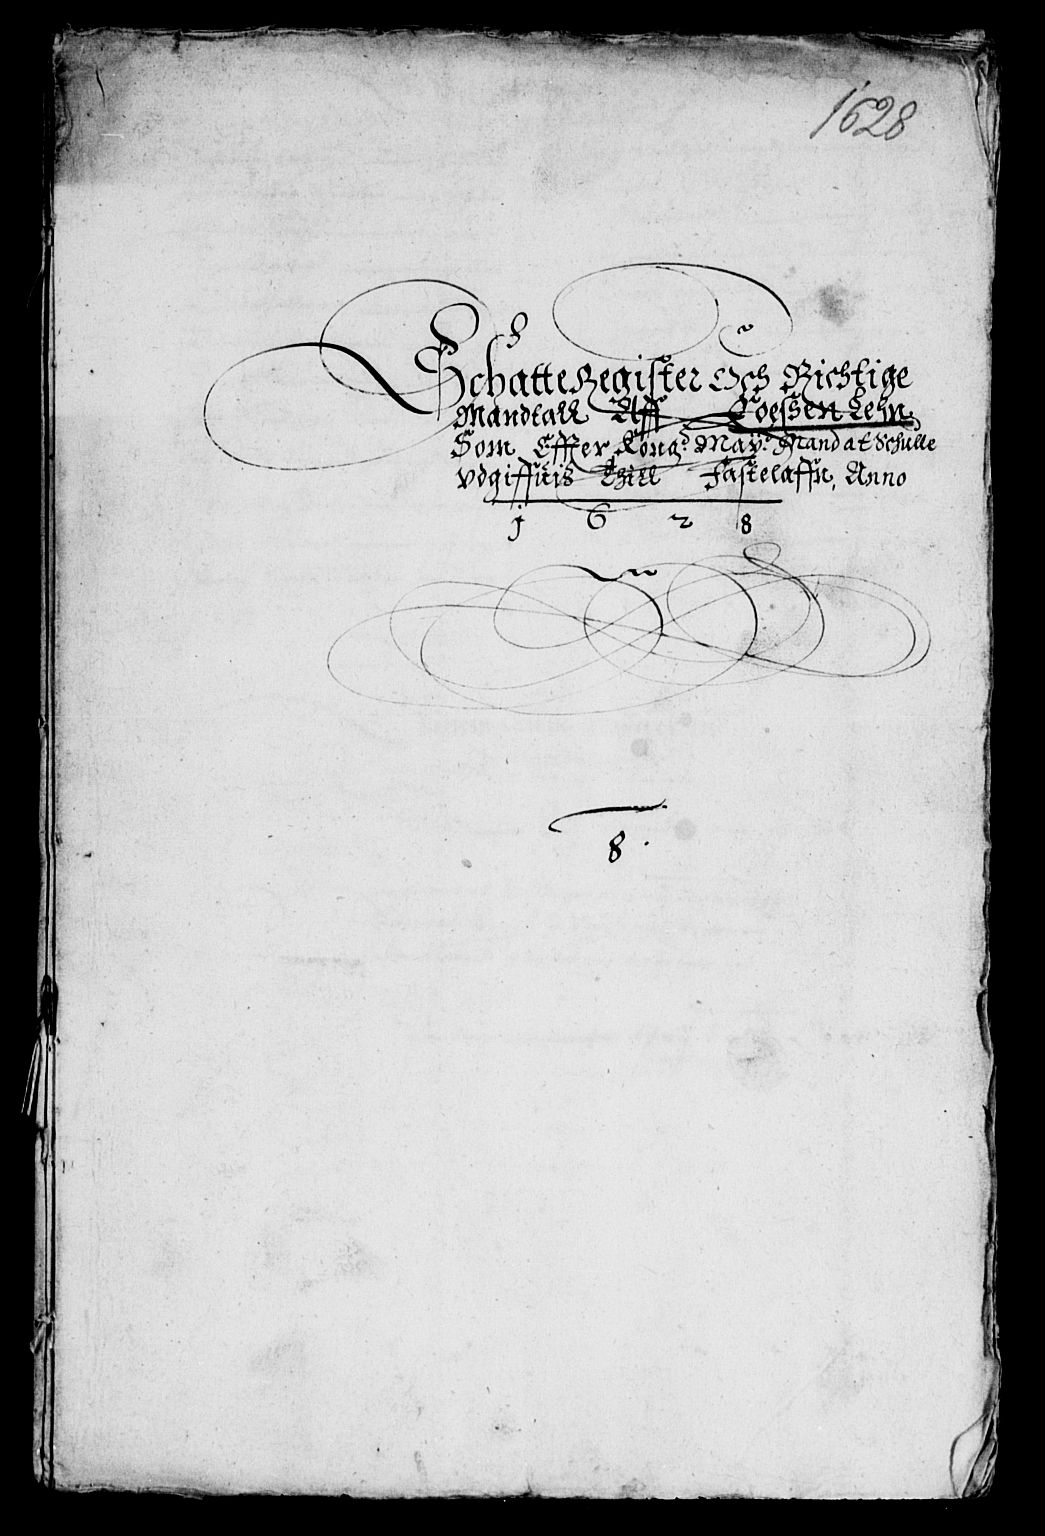 1628
Schatte Register Och Richtige
Mandtall Aff Toessen Lehn
Som Effter Kong: May: Mandat Schulle
vdgiffuis Thill Fastelaffn, Anno
1 6 2 8
8